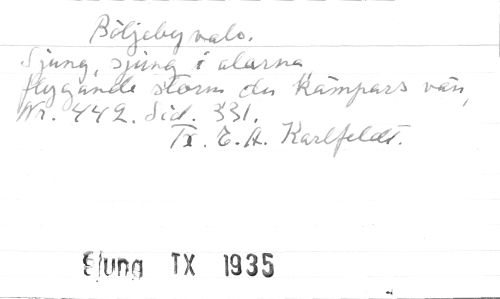 Böljebyvals.
Sjung, sjung i alarna
flygande storm du kämpars vän,
Nr. 442. Sid. 331.
Tx. E. A. Karlfeldt.
Sjung TX 1935